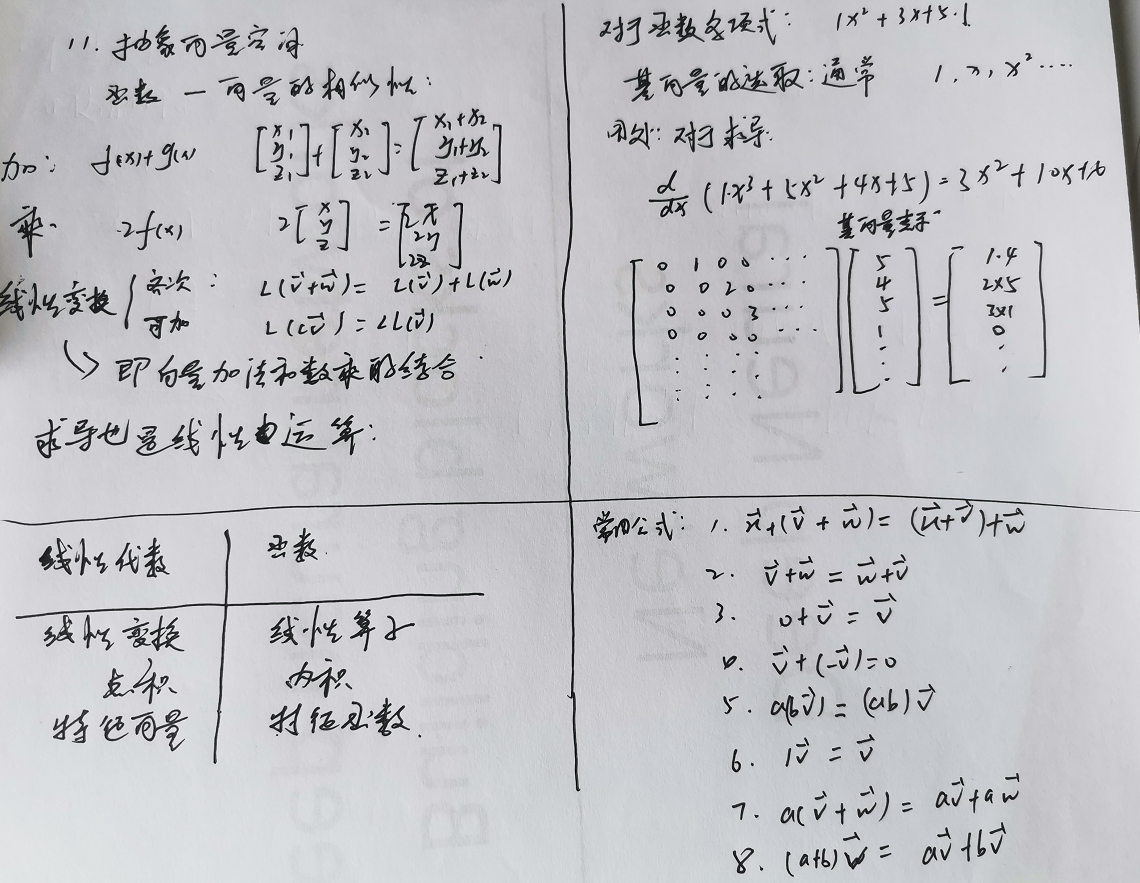 11. 抽象向量空间
函数 — 向量的相似性:
加: f(x)+g(x) [x₁ y₁ z₁] + [x₂ y₂ z₂] = [x₁+x₂ y₁+y₂ z₁+z₂]
乘. 2f(x) 2[x y z] = [2x 2y 2z]
线性变换 { 齐次: L(v⃗+w⃗) = L(v⃗)+L(w⃗)
可加 L(cv⃗) = cL(v⃗)
↳ 即向量加法和数乘的结合
求导也是线性运算:
对于函数多项式: 1x²+3x+5·1.
基向量的选取: 通常 1, x, x² ····
因此: 对于求导:
d/dx (1x³+5x²+4x+5) = 3x²+10x+
基向量表示
[0 1 0 0 ···] [5] = [1·4]
[0 0 2 0 ···] [4] [2×5]
[0 0 0 3 ···] [5] [3×1]
[0 0 0 0 ···] [1] [0]
线性代数 函数.
线性变换 线性算子
点积 内积
特征向量 特征函数.
常用公式: 1. u⃗+(v⃗+w⃗) = (u⃗+v⃗)+w⃗
2. v⃗+w⃗ = w⃗+v⃗
3. 0+v⃗ = v⃗
v⃗+(-v⃗)=0
5. a(bv⃗) = (ab)v⃗
6. 1v⃗ = v⃗
7. a(v⃗+w⃗) = av⃗+aw⃗
8. (a+b)v⃗ = av⃗+bv⃗